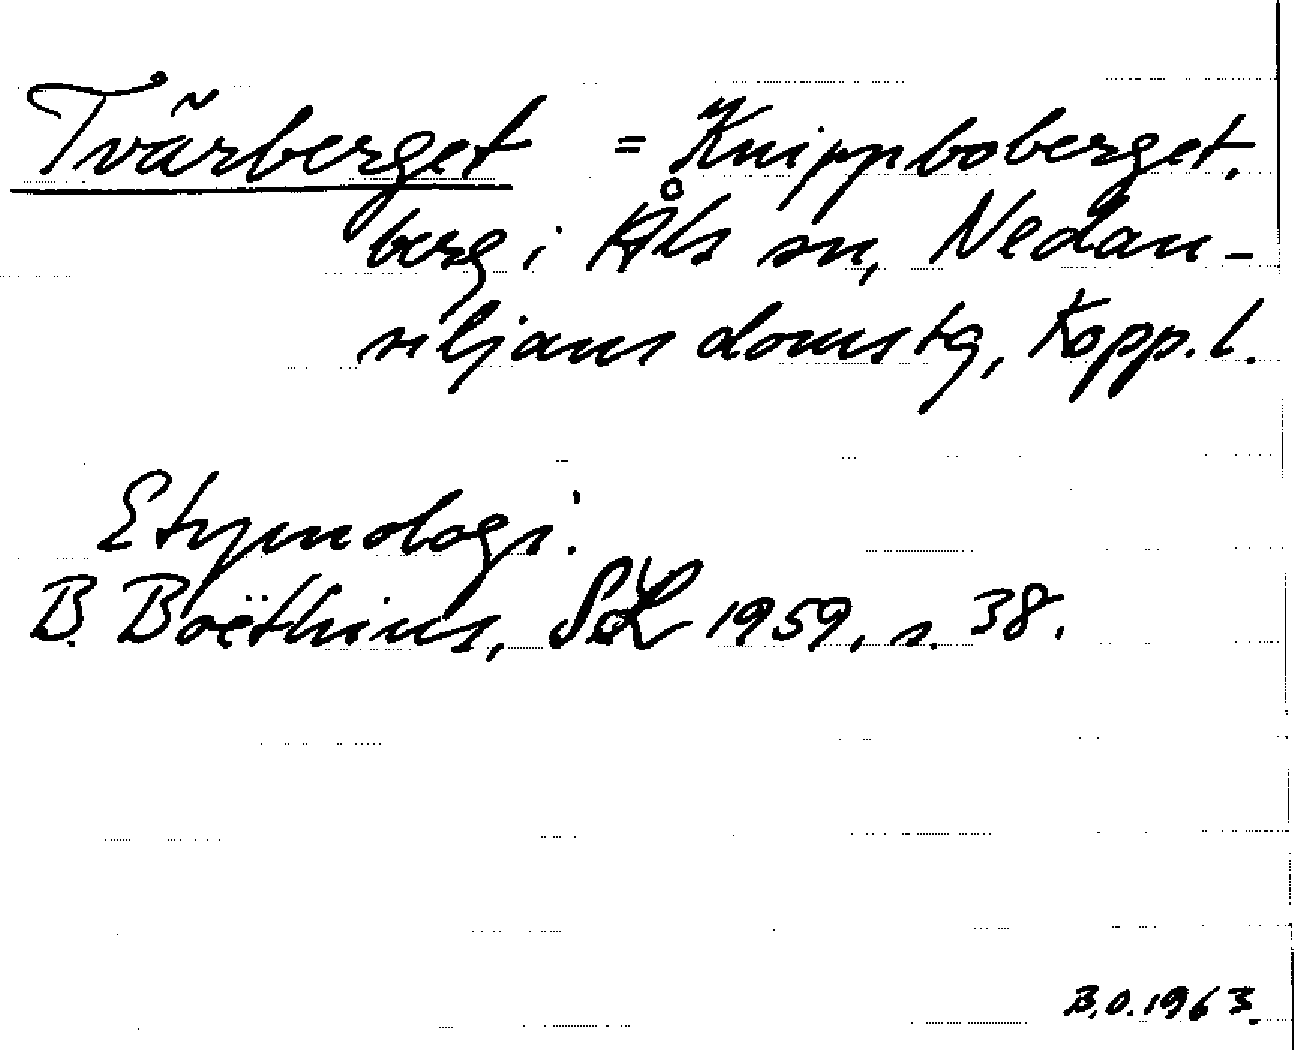 Tvärberget = Knippboberget.
berg i Åls sn, Nedan-
siljans domstg, Kopp. l.
Etymologi:
B. Boëthius, SoL 1959, s. 38.
B.O. 1963.